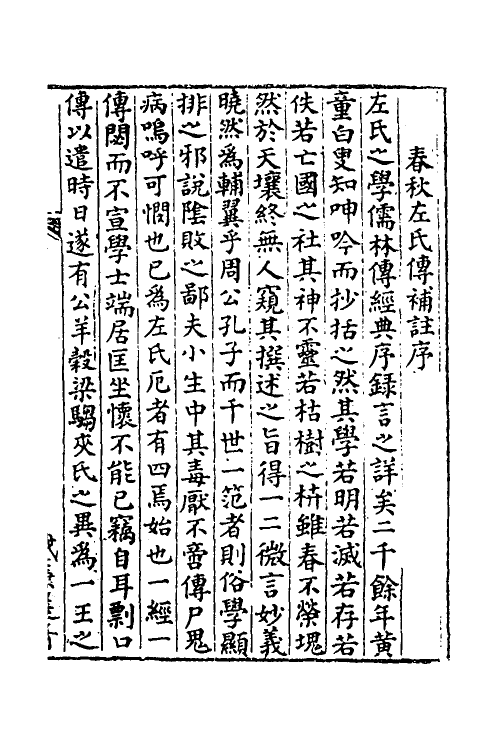 春秋左氏傳補註序
左氏之學儒林傳經典序録言之詳矣二千餘年黄
童白叟知呻吟而抄括之然其學若明若滅若存若
佚若亡國之社其神不靈若枯樹之枿雖春不榮塊
然於天壤終無人窺其撰述之旨得一二微言妙義
曉然爲輔翼乎周公孔子而千世一范者則俗學顯
排之邪說陰敗之鄙夫小生中其毒厭不啻傳尸鬼
病嗚呼可憫也已爲左氏厄者有四焉始也一經一
傳閟而不宣學士端居匡坐懷不能已竊自耳剽口
傳以遣時日遂有公羊穀梁騶夾氏之異爲一王之